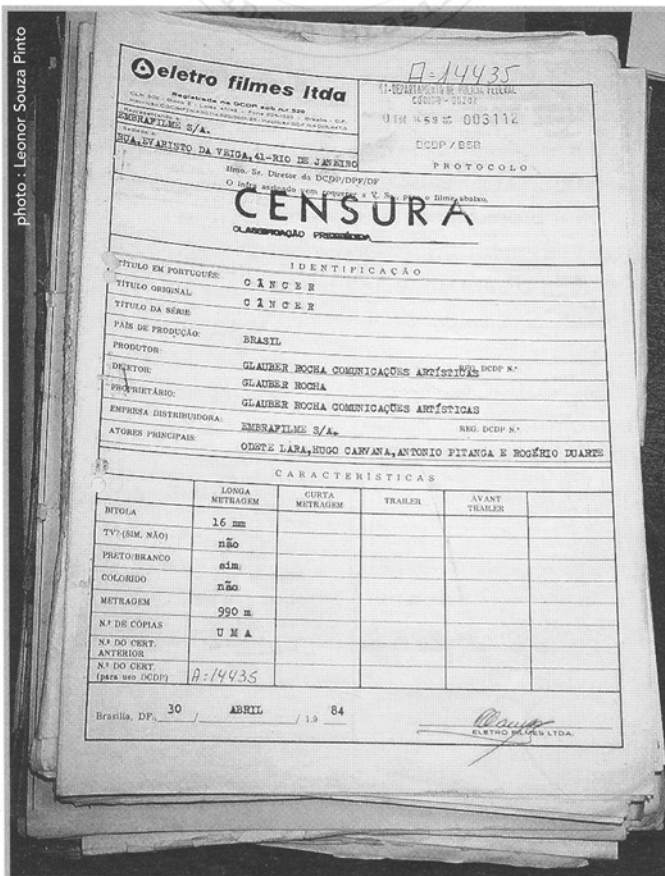 photo : Leonor Souza Pinto
A=14435
eletro filmes ltda
Registrada na DCDP sob n.º
EMBRAFILME S/A.
RUA, EVARISTO DA VEIGA, 41-RIO DE JANEIRO
003112
DCDP / BSB
PROTOCOLO
Ilmo. Sr. Diretor da DCDP/DPF/DF
O infra assinado vem requerer a V. Sa., para o filme abaixo,
CENSURA
CLASSIFICAÇÃO
IDENTIFICAÇÃO
TÍTULO EM PORTUGUÊS: CÂNCER
TÍTULO ORIGINAL CÂNCER
TÍTULO DA SÉRIE
PAÍS DE PRODUÇÃO: BRASIL
PRODUTOR: GLAUBER ROCHA COMUNICAÇÕES ARTÍSTICAS REG. DCDP N.º
DIRETOR: GLAUBER ROCHA
PROPRIETÁRIO: GLAUBER ROCHA COMUNICAÇÕES ARTÍSTICAS
EMPRESA DISTRIBUIDORA: EMBRAFILME S/A. REG. DCDP N.º
ATORES PRINCIPAIS: ODETE LARA, HUGO CARVANA, ANTONIO PITANGA E ROGÉRIO DUARTE
CARACTERÍSTICAS
LONGA METRAGEM CURTA METRAGEM TRAILER AVANT TRAILER
BITOLA 16 mm
TV? (SIM, NÃO) não
PRETO/BRANCO sim
COLORIDO não
METRAGEM 990 m
N.º DE CÓPIAS UMA
N.º DO CERT. ANTERIOR
N.º DO CERT. (para uso DCDP) A=14435
Brasília, DF., 30 / ABRIL / 19 84
ELETRO FILMES LTDA.